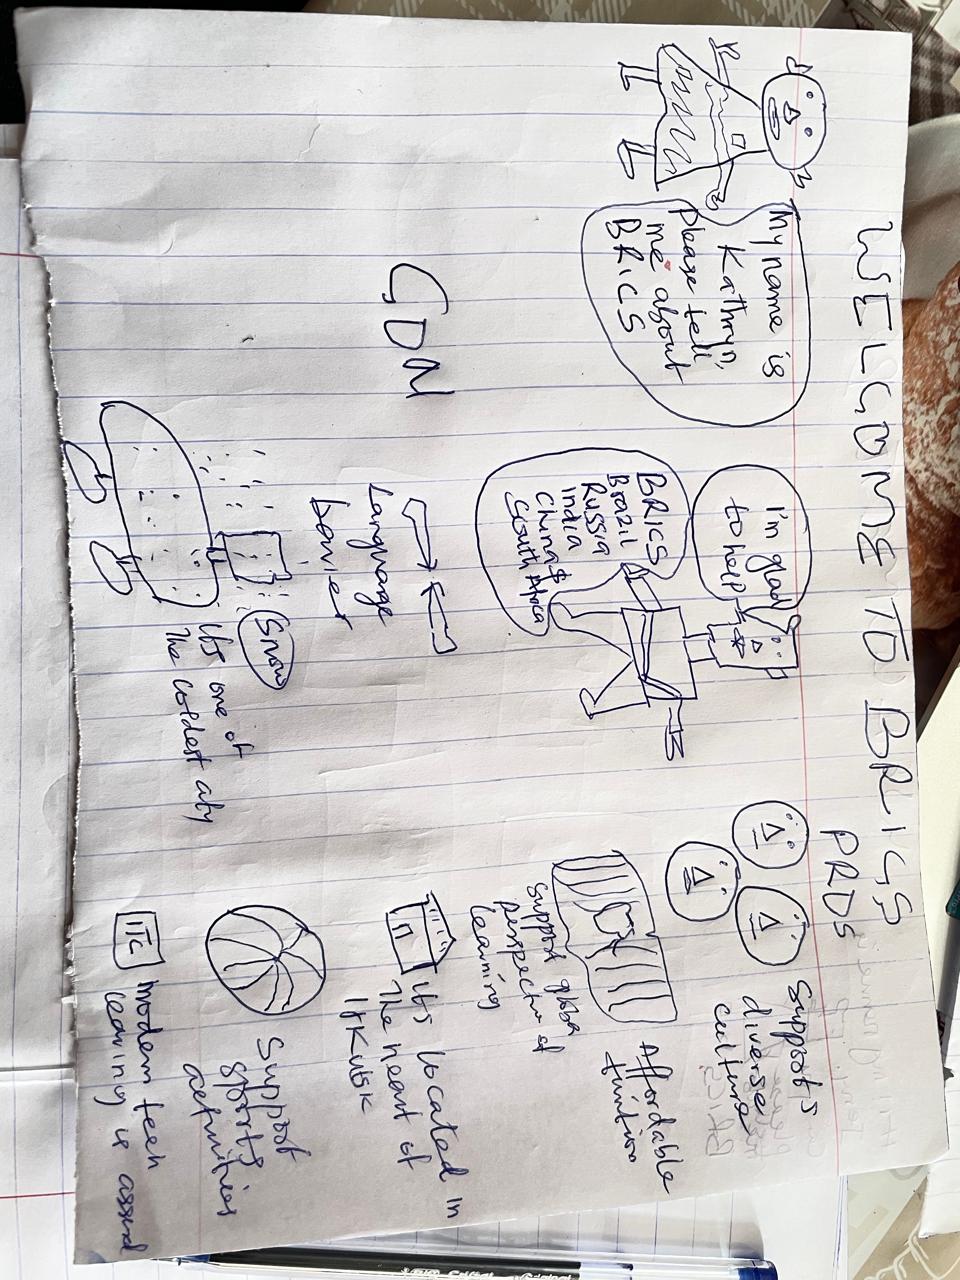 WELCOME TO BRICS
My name is
Kathryn,
Please tell
me about
BRICS
I'm glad
to help
BRICS
Brazil
Russia
India
China $
South Africa
CON
Language
barrier
Snow
Its one of
The coldest
PROS
Supports
diverse
culture
Affordable
tuition
Support
perspective of
learning
Its located in
The heart of
Irkutsk
Support
sports
activities
ITC
modern tech
learning is